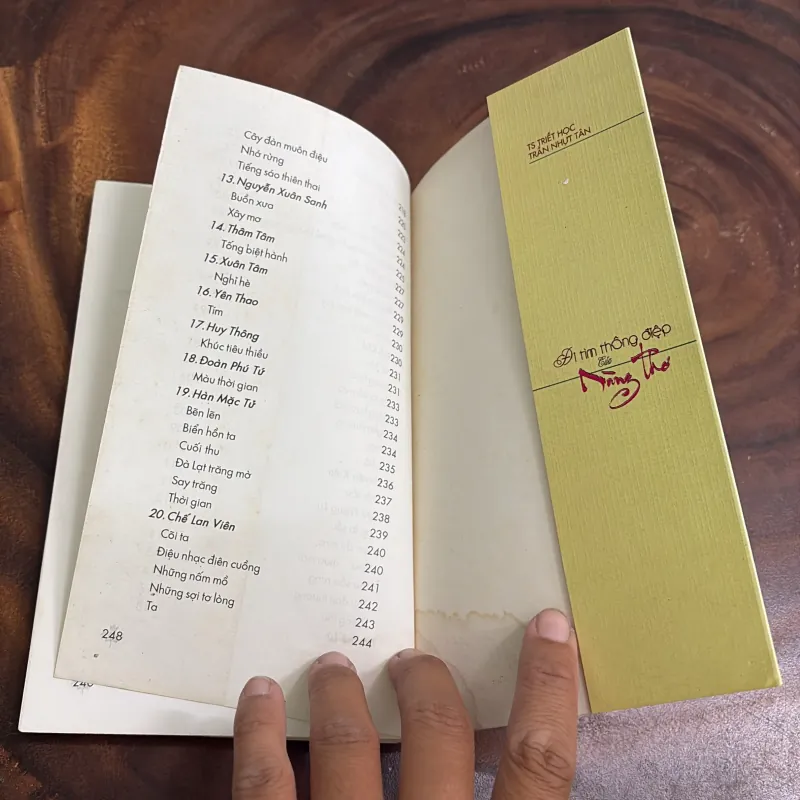 Cây đàn muôn điệu 218
Nhớ rừng 220
Tiếng sáo thiên thai 223
13. Nguyễn Xuân Sanh 224
Buồn xưa 224
Xây mơ 225
14. Thâm Tâm 227
Tống biệt hành 227
15. Xuân Tâm 229
Nghỉ hè 229
16. Yên Thao 230
Tim 230
17. Huy Thông 231
Khúc tiêu thiều 231
18. Đoàn Phú Tứ 233
Màu thời gian 233
19. Hàn Mặc Tử 234
Bẽn lẽn 234
Biển hồn ta 235
Cuối thu 236
Đà Lạt trăng mờ 237
Say trăng 238
Thời gian 239
20. Chế Lan Viên 240
Cõi ta 240
Điệu nhạc điên cuồng 241
Những nấm mồ 242
Những sợi tơ lòng 243
Ta 244
248
TS TRIẾT HỌC
TRẦN NHỰT TÂN
Đi tìm thông điệp
Của
Nàng Thơ